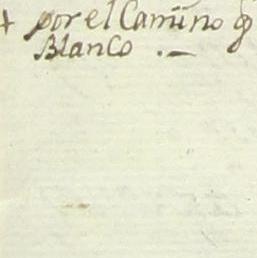 + por el Camino q
Blanco . _